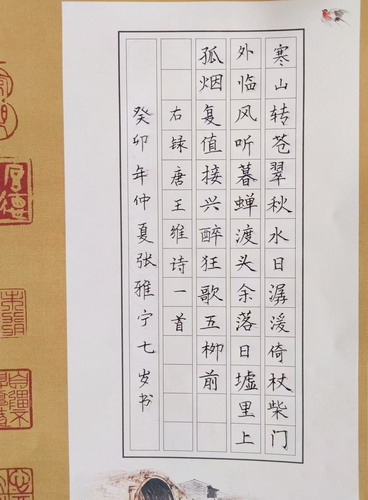 寒山转苍翠秋水日潺湲倚杖柴门
外临风听暮蝉渡头余落日墟里上
孤烟复值接兴醉狂歌五柳前
右录唐王维诗一首
癸卯年仲夏张雅宁七岁书